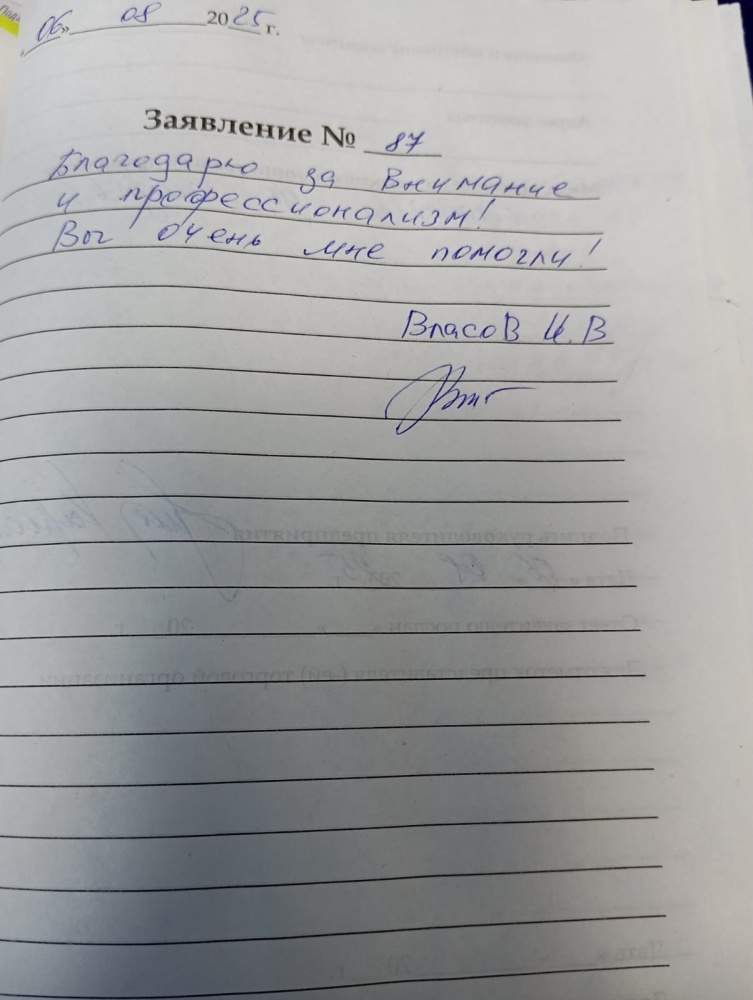 06» 08 2025 г.
Заявление № 87
Благодарю за внимание
и профессионализм!
Вы очень мне помогли!
Власов И.В